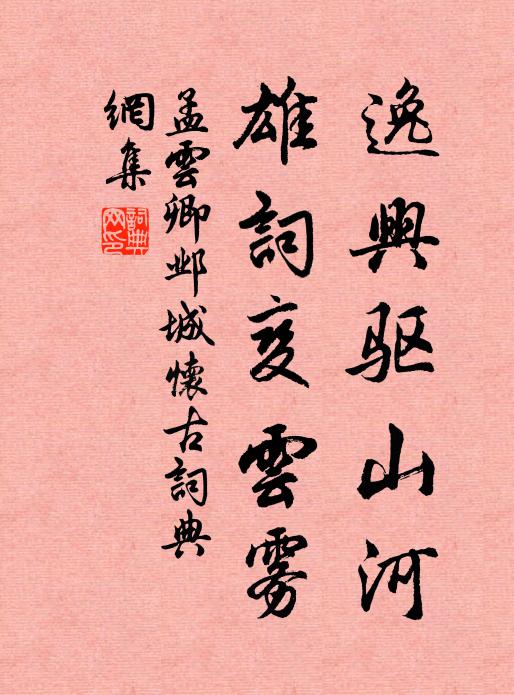 逸興驱山河
雄詞变雲雾
孟雲卿邺城懷古詞典
網集
詞典網印